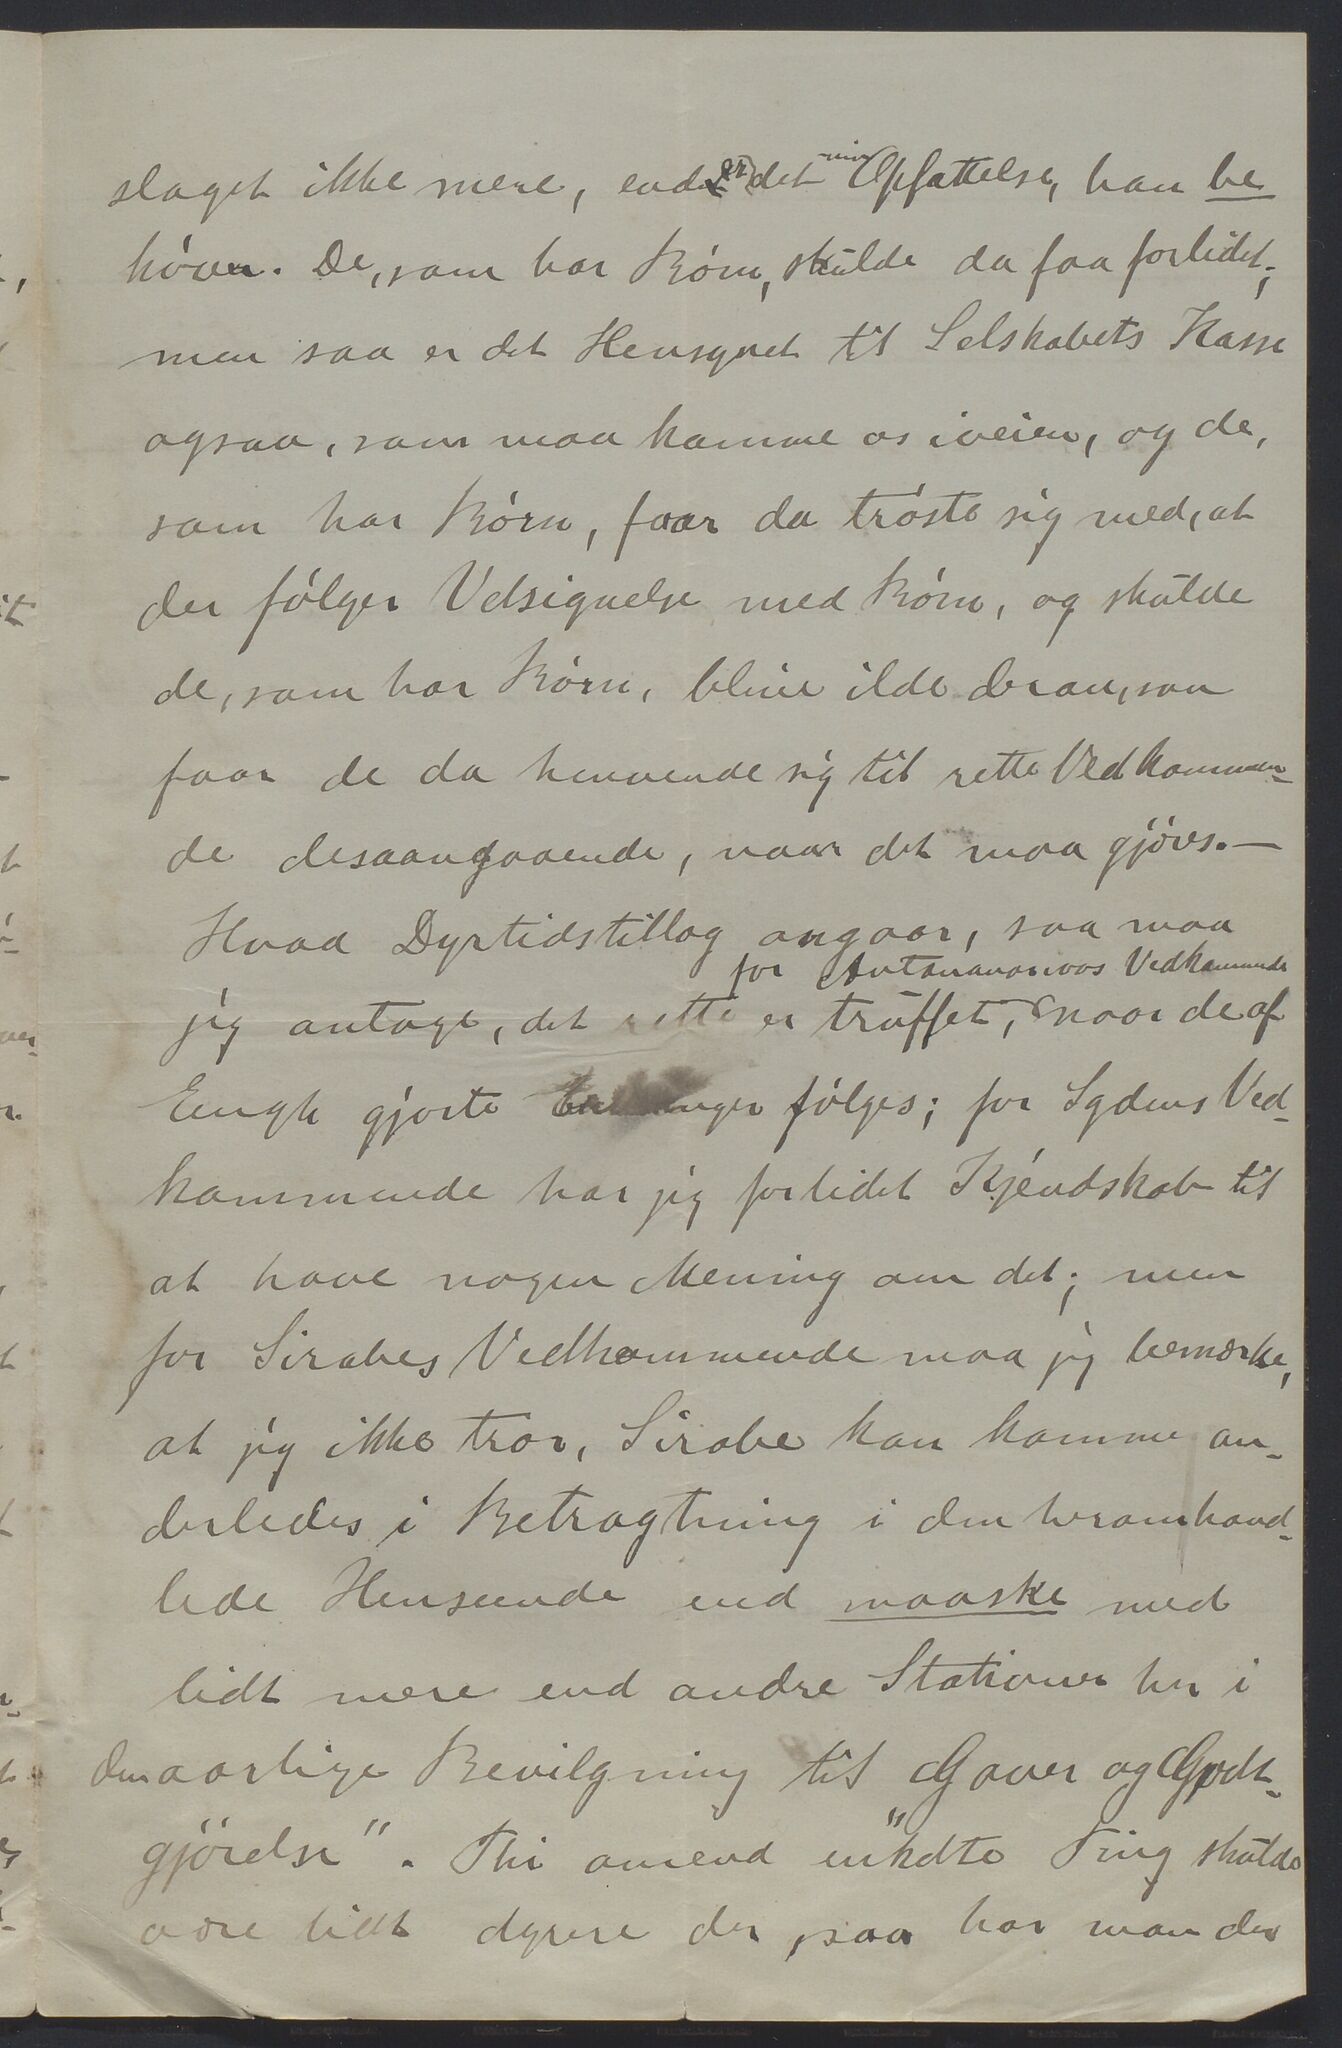 slaget ikke mere, end er det min Opfattelse, han be
høver. De, som har Børn, skulde da faa forlidet;
men saa er det Hensynet til Selskabets Kasse
ogsaa, som maa komme os iveien, og de,
som har Børn, faar da trøste sig med, at
der følger Velsignelse med Børn, og skulde
de, som har Børn, blive ilde deran, saa
faar de da henvende sig til rette Vedkommen-
de desaangaaende, naar det maa gjøres.—
Hvad Dyrtidstillæg angaar, saa maa
for Antananarivos Vedkommende
jeg antage, det rette er truffet, naar de af
Eengh gjorte følges; for Sydens Ved-
kommende har jeg forlidet Kjendskab til
at have nogen Mening om det; men
for Sirabes Vedkommende maa jeg bemærke,
at jeg ikke tror, Sirabe kan komme an-
derledes i Betragtning i den heromhand-
lede Henseende end maaske med
lidt mere end andre Stationer her i
den aarlige Bevilgning til "Gaver og Godt-
gjørelse". Thi omend enkelte Ting skulde
være lidt dyrere der, saa har man der